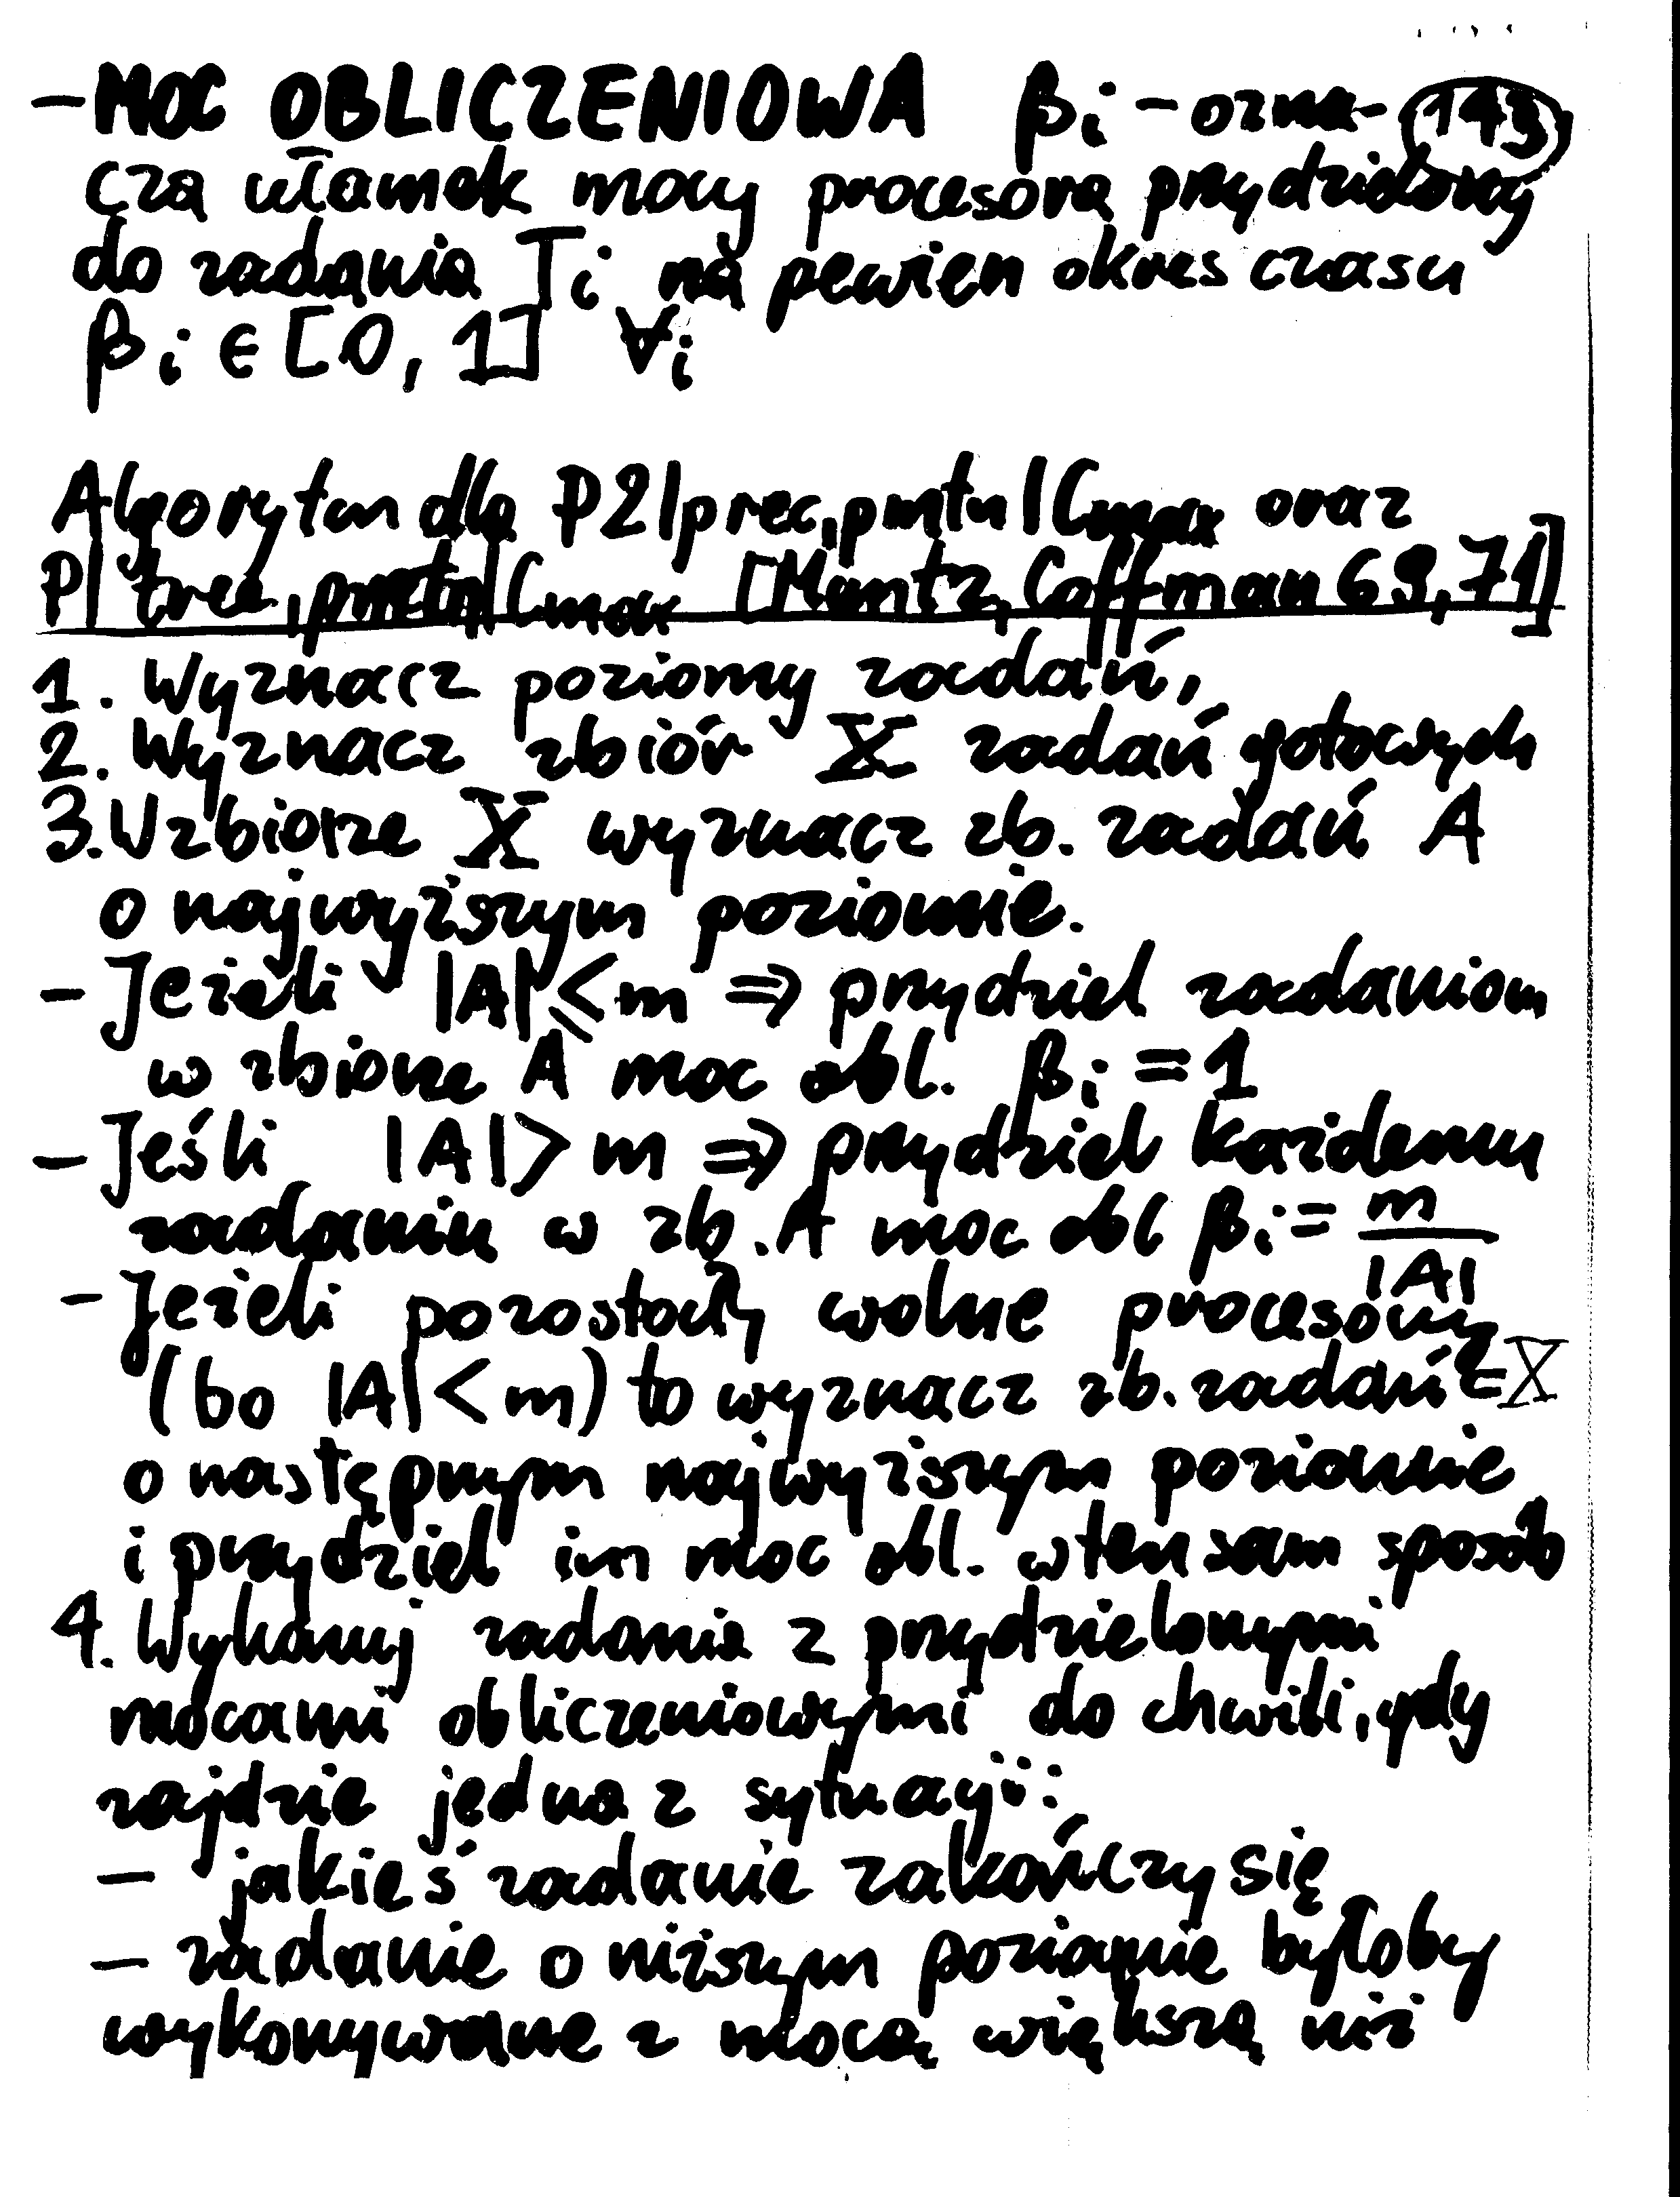 - MOC OBLICZENIOWA βi - ozna- 143
cza ułamek mocy procesora przydzielony
do zadania Ti na pewien okres czasu
βi ∈ [0, 1] ∀i
Algorytm dla P2|prec,pmtn|Cmax oraz
P|tree,pmtn|Cmax [Muntz, Coffman 69,71]
1. Wyznacz poziomy zadań,
2. Wyznacz zbiór X zadań gotowych
3. W zbiorze X wyznacz zb. zadań A
o najwyższym poziomie.
- Jeżeli |A| ≤ m ⇒ przydziel zadaniom
w zbiorze A moc obl. βi = 1
- Jeśli |A| > m ⇒ przydziel każdemu
zadaniu w zb. A moc obl βi := m/|A|
- Jeżeli pozostały wolne procesory
(bo |A| < m) to wyznacz zb. zadań ∈ X
o następnym najwyższym poziomie
i przydziel im moc obl. w ten sam sposób
4. Wykonuj zadania z przydzielonymi
mocami obliczeniowymi do chwili, gdy
zajdzie jedna z sytuacji:
- jakieś zadanie zakończy się
- zadanie o niższym poziomie byłoby
wykonywane z mocą większą niż